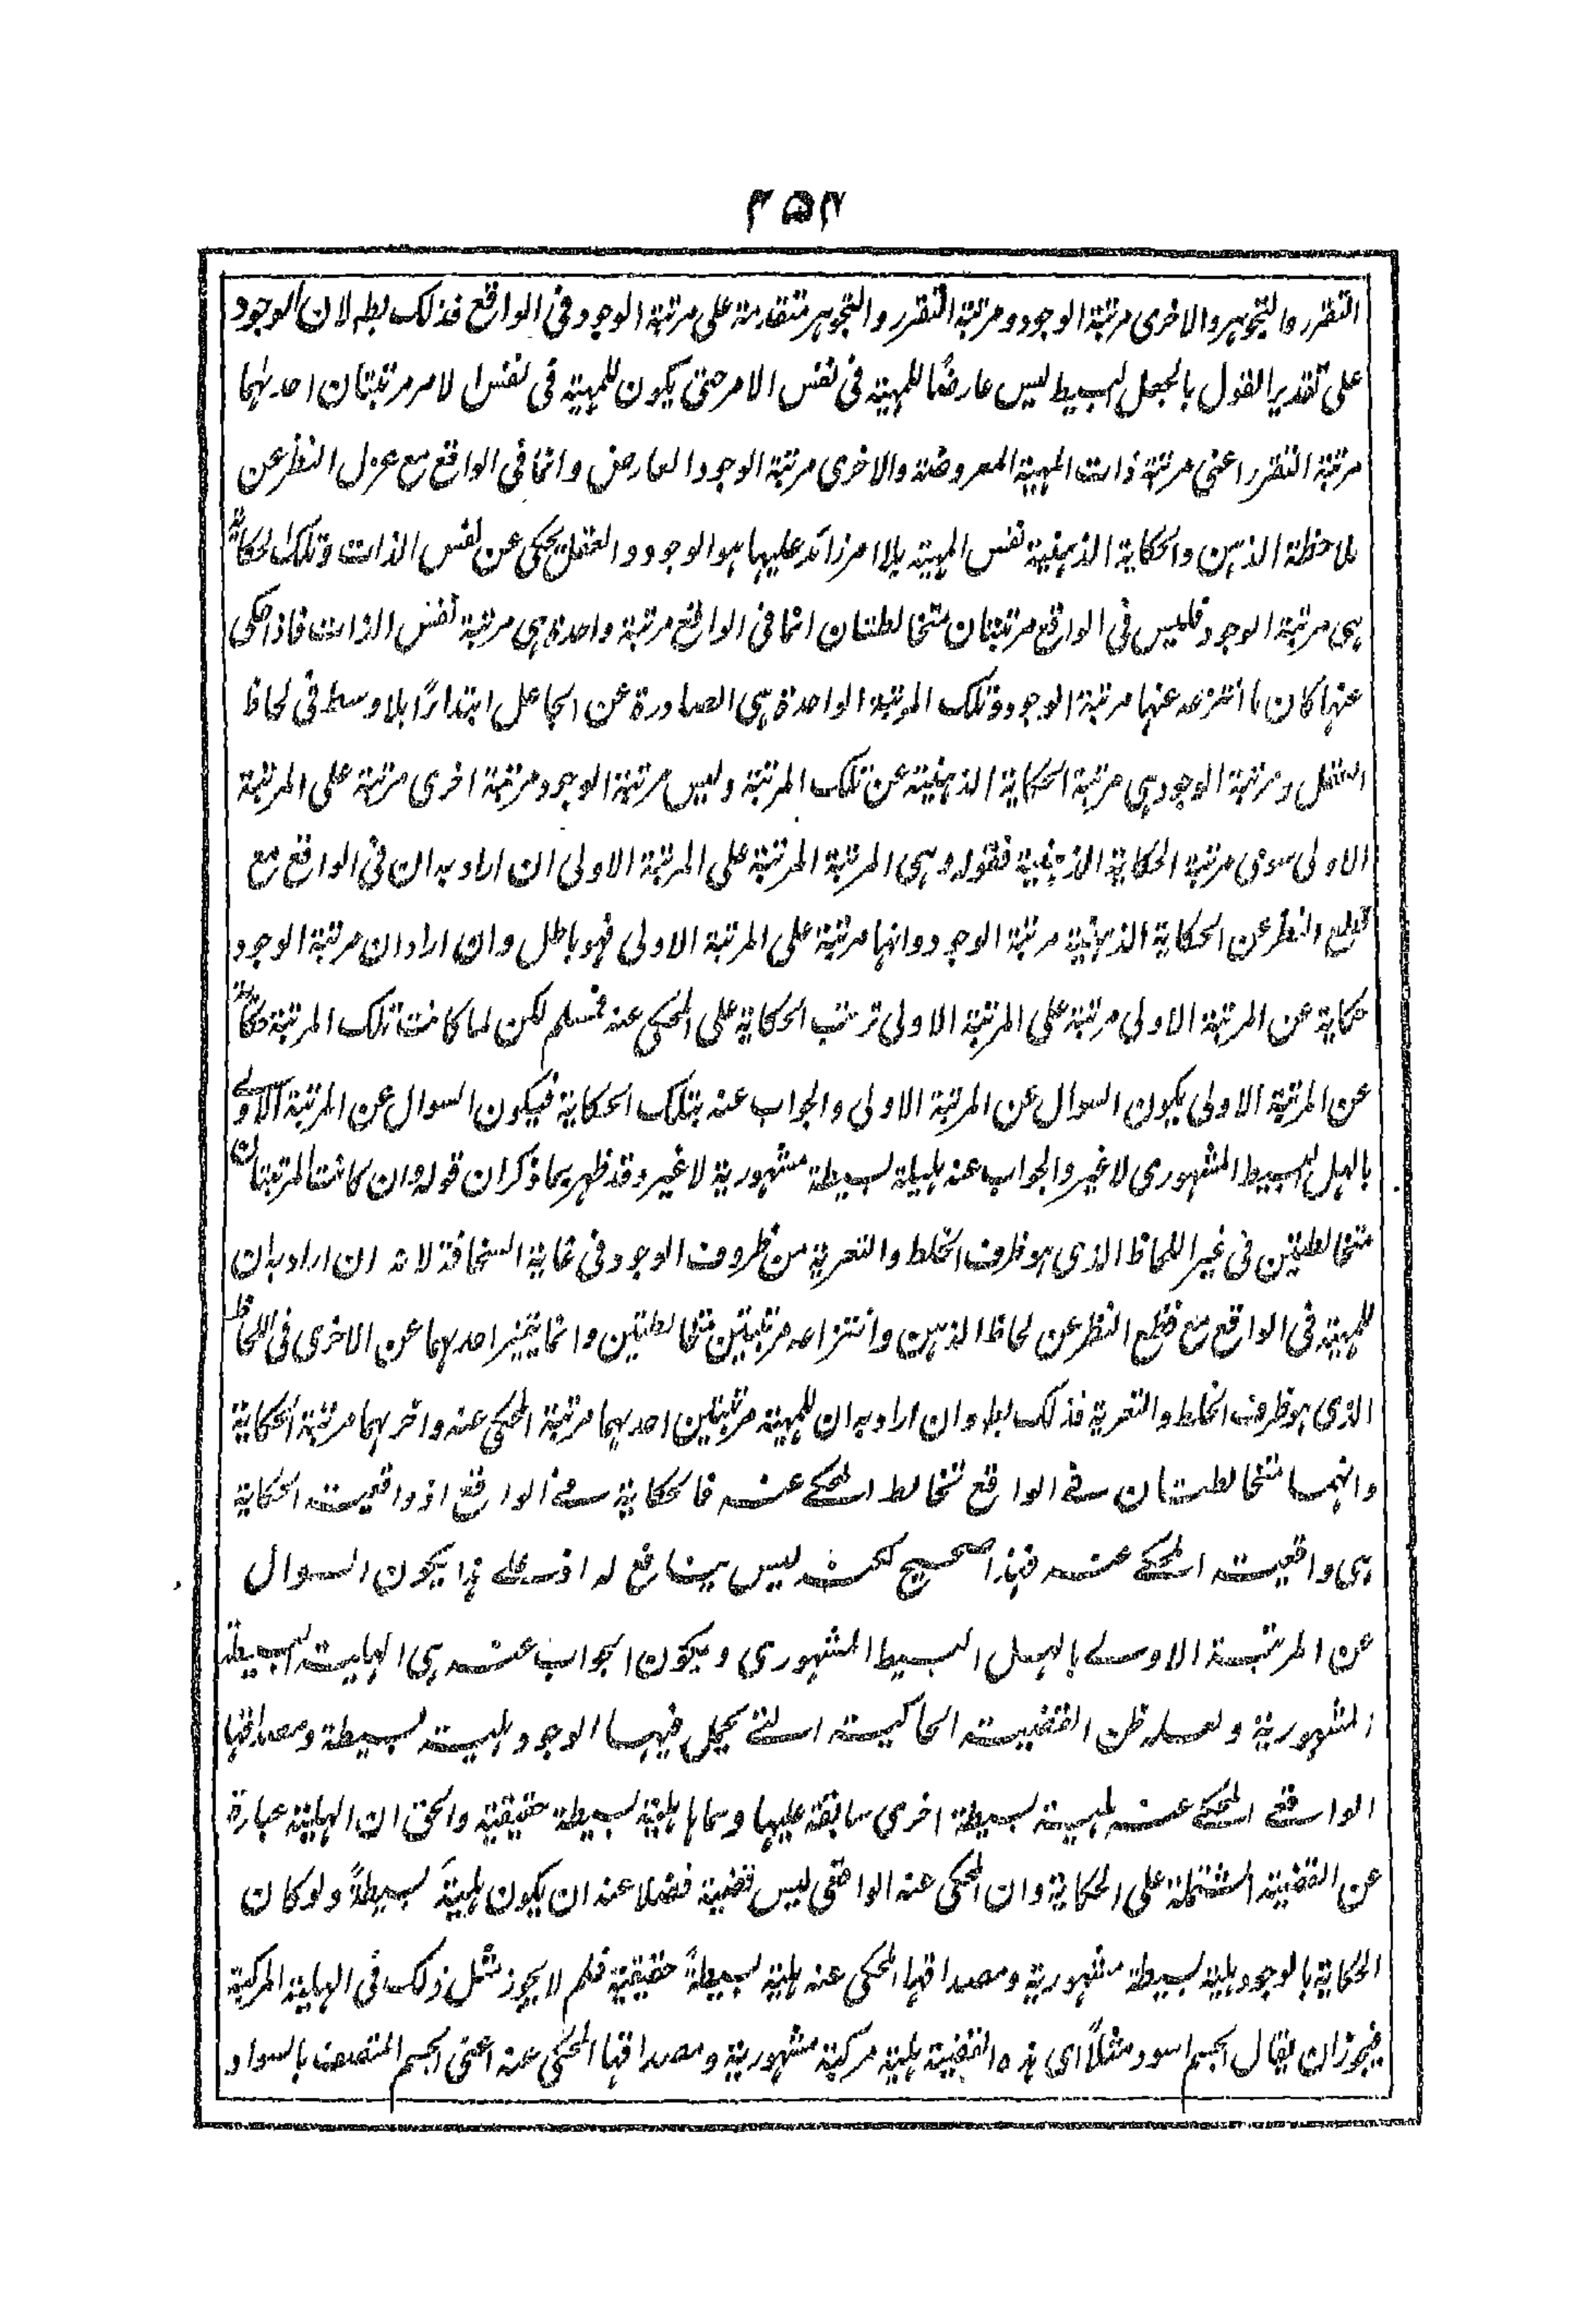 ٢٥٢
التقرر والتجوهر والاخرى مرتبة الوجود ومرتبة التقرر والتجوهر متقدمة على مرتبة الوجود فى الواقع فذلك بط لان الوجود
على تقدير القول بالجعل البسيط ليس عارضًا للمهية فى نفس الامر حتى يكون للمهية فى نفس الامر مرتبتان احدٰهما
مرتبة التقرر اعنى مرتبة ذات المهية المعروضة والاخرى مرتبة الوجود العارض وانما فى الواقع مع عزل النظر عن
ملاحظة الذهن والحكاية الذهنية نفس المهية بلا امر زائد عليها هو الوجود والعقل يحكى عن نفس الذات وتلك الحكاية
هى مرتبة الوجود فليس فى الواقع مرتبتان متخالطتان انما فى الواقع مرتبة واحدة هى مرتبة نفس الذات فاذا حكى
عنها كان ما انتزعه عنها مرتبة الوجود وتلك المرتبة الواحدة هى الصادرة عن الجاعل ابتداءً بلا وسط فى لحاظ
العقل ومرتبة الوجود هى مرتبة الحكاية الذهنية عن تلك المرتبة وليس مرتبة الوجود مرتبة اخرى مرتبة على المرتبة
الاولى سوى مرتبة الحكاية الذهنية فقوله وهى المرتبة المرتبة على المرتبة الاولى ان اراد به ان فى الواقع مع
قطع النظر عن الحكاية الذهنية مرتبة الوجود وانها مرتبة على المرتبة الاولى فهو باطل وان اراد ان مرتبة الوجود
حكاية عن المرتبة الاولى مرتبة على المرتبة الاولى ترتب الحكاية على المحكى عنه فمسلم لكن لما كانت تلك المرتبة حكاية
عن المرتبة الاولى يكون السوال عن المرتبة الاولى والجواب عنه بتلك الحكاية فيكون السوال عن المرتبة الاولى
بالهل البسيط المشهورى لا غير والجواب عنه هلية بسيطة مشهورية لا غير وقد ظهر بما ذكر ان قوله وان كانت المرتبتان
متخالطتين فى غير اللحاظ الذى هو ظرف الخلط والتعرية من ظروف الوجود فى غاية السخافة لانه ان اراد به ان
للمهية فى الواقع مع قطع النظر عن لحاظ الذهن وانتزاعه مرتبتين متخالطتين وانما يتميز احدهما عن الاخرى فى اللحاظ
الذى هو ظرف الخلط والتعرية فذلك بط وان اراد به ان للمهية مرتبتين احدهما مرتبة المحكى عنه واخرهما مرتبة الحكاية
وانهما متخالطتان فى الواقع تخالط المحكى عنه فالحكاية فى الواقع اذ واقعية الحكاية
هى واقعية المحكى عنه فهذا صحيح لكنه ليس بنافع له اذ على هذا يكون السوال
عن المرتبة الاولى بالهل البسيط المشهورى ويكون الجواب عنه هى الهلية البسيطة
المشهورية ولعله ظن القضية الحاكية التى يحمل فيها الوجود هلية بسيطة ومصداقها
الواقعى المحكى عنه هلية بسيطة اخرى سابقة عليها وسماها هلية بسيطة حقيقية والحق ان الهلية عبارة
عن القضية المشتملة على الحكاية وان المحكى عنه الواقعى ليس قضية فضلا عنه ان يكون هليةً بسيطةً ولو كان
الحكاية بالوجود هلية بسيطة مشهورية ومصداقها المحكى عنه هلية بسيطةً حقيقية فلم لا يجوز مثل ذلك فى الهلية المركبة
فيجوز ان يقال الجسم اسود مثلاً اى هذه القضية هلية مركبة مشهورية ومصداقها المحكى عنه اعنى الجسم المتصف بالسواد